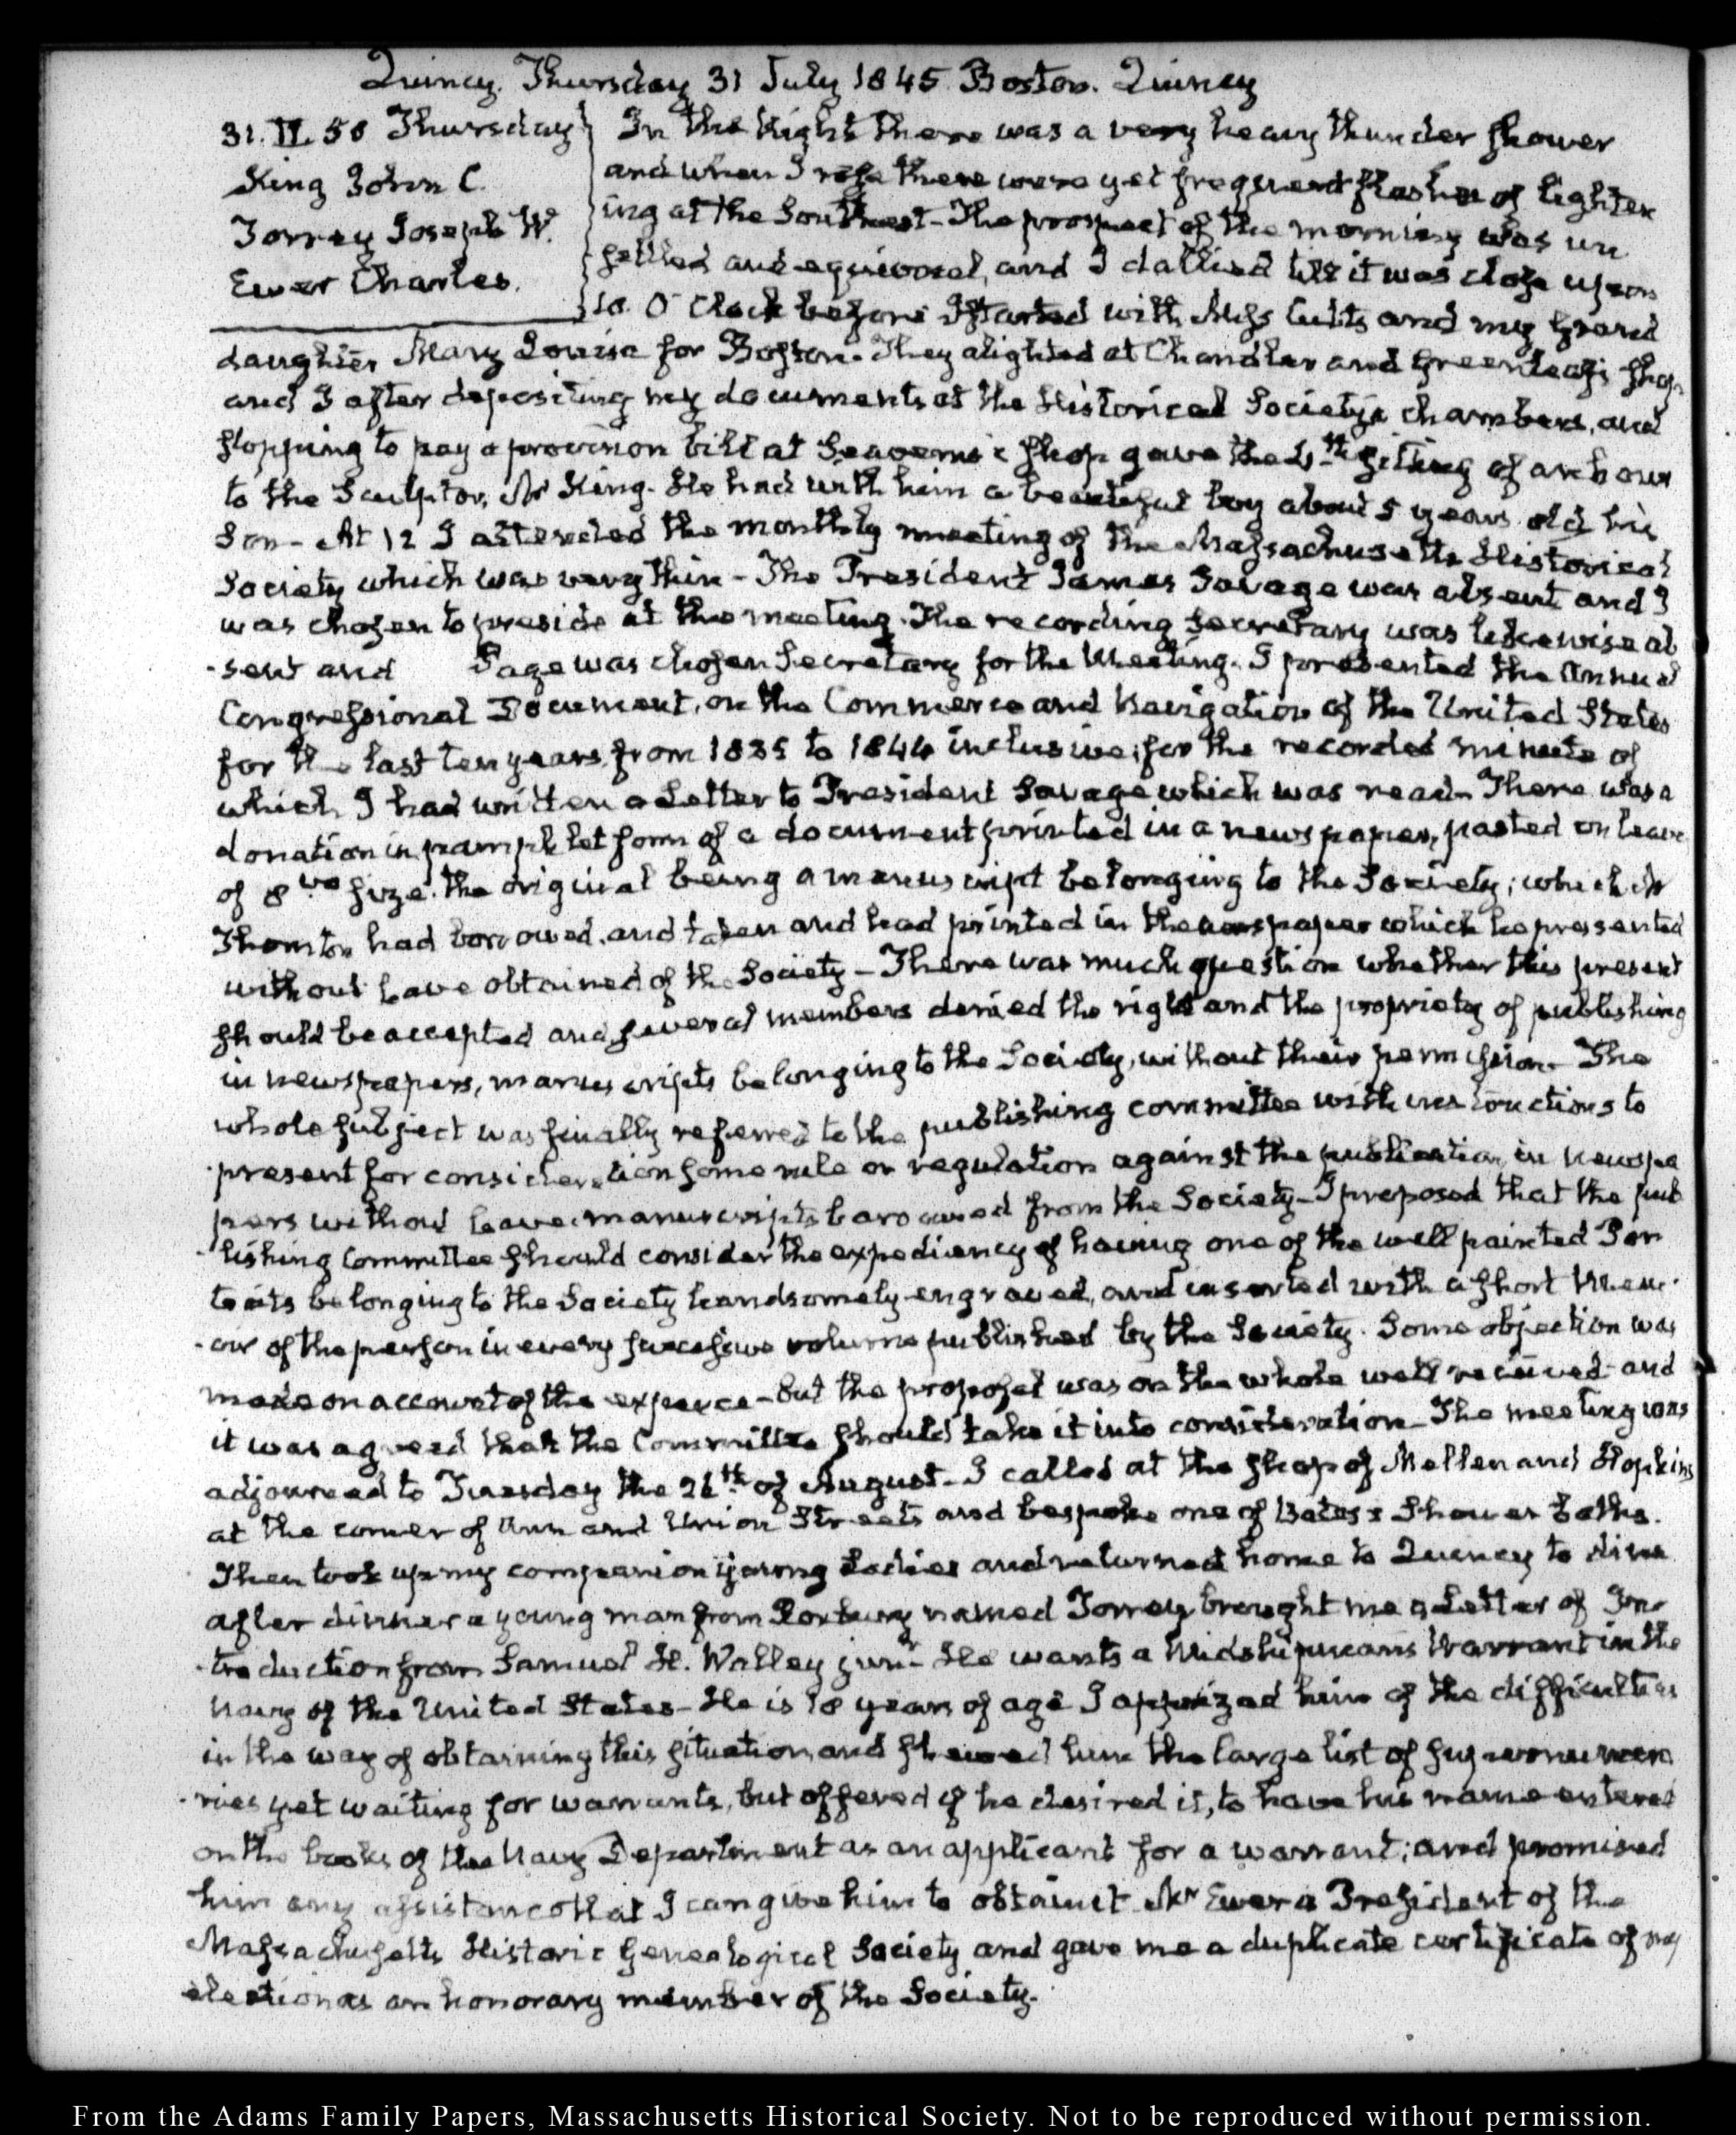 Quincy. Thursday 31 July 1845. Boston. Quincy
31. IV. 50 Thursday
King John C.
Torrey Joseph W.
Ewer Charles.
In the Night there was a very heavy thunder shower
and when I rose there were yet frequent flashes of lighten
ing at the Southwest - The prospect of the morning was un
settled and equivocal, and I dallied till it was close upon
10. O'Clock before I started with Miss Cutts and my Grand
daughter Mary Louisa for Boston. They alighted at Chandler and Greenleaf's shop
and I after depositing my documents at the Historical Society's chambers, and
stopping to pay a provision bill at Seavern's shop gave the sitting of an hour
to the Sculptor, Mr King. He had with him a beautiful boy about 5 years old his
Son - At 12 I attended the monthly meeting of the Massachusetts Historical
Society which was very thin - The President James Savage was absent and I
was chosen to preside at the meeting. The recording Secretary was likewise ab
-sent and Page was chosen Secretary for the Meeting. I presented the Annual
Congressional Document, on the Commerce and Navigation of the United States
for the last ten years from 1835 to 1844 inclusive; for the recorded minute of
which I had written a Letter to President Savage which was read - There was a
donation in pamphlet form of a document printed in a newspaper, pasted on leave
of 8vo size. the original being a manuscript belonging to the Society; which Mr
Thornton had borrowed, and taken and had printed in the newspaper which he presented
without leave obtained of the Society - There was much question whether this present
should be accepted and several members denied the right and the propriety of publishing
in newspapers, manuscripts belonging to the Society, without their permission - The
whole subject was finally referred to the publishing committee with instructions to
present for consideration some rule or regulation against the publication in newspa
pers without leave manuscripts borrowed from the Society - I proposed that the pub
-lishing Committee should consider the expediency of having one of the well painted Por
traits belonging to the Society handsomely engraved, and inserted with a short Mem
-oir of the person in every successive volume published by the Society. Some objection was
made on account of the expence - but the proposal was on the whole well received and
it was agreed that the Committee should take it into consideration - The meeting was
adjourned to Tuesday the 26th of August - I called at the shop of Mellen and Hopkins
at the corner of Ann and Union Streets and bespoke one of Bates's Shower baths.
Then took up my companion young Ladies and returned home to Quincy to dine
after dinner a young man from Roxbury named Torrey brought me a Letter of In
-troduction from Samuel H. Walley junr - He wants a Midshipman's Warrant in the
Navy of the United States - He is 18 years of age I apprized him of the difficulties
in the way of obtaining this situation and shewed him the large list of supernumera
-ries yet waiting for warrants, but offered if he desired it, to have his name entered
on the books of the Navy Department as an applicant for a warrant; and promised
him any assistance that I can give him to obtain it. Mr Ewer is President of the
Massachusetts Historic Genealogical Society and gave me a duplicate certificate of my
election as an honorary member of the Society.
From the Adams Family Papers, Massachusetts Historical Society. Not to be reproduced without permission.